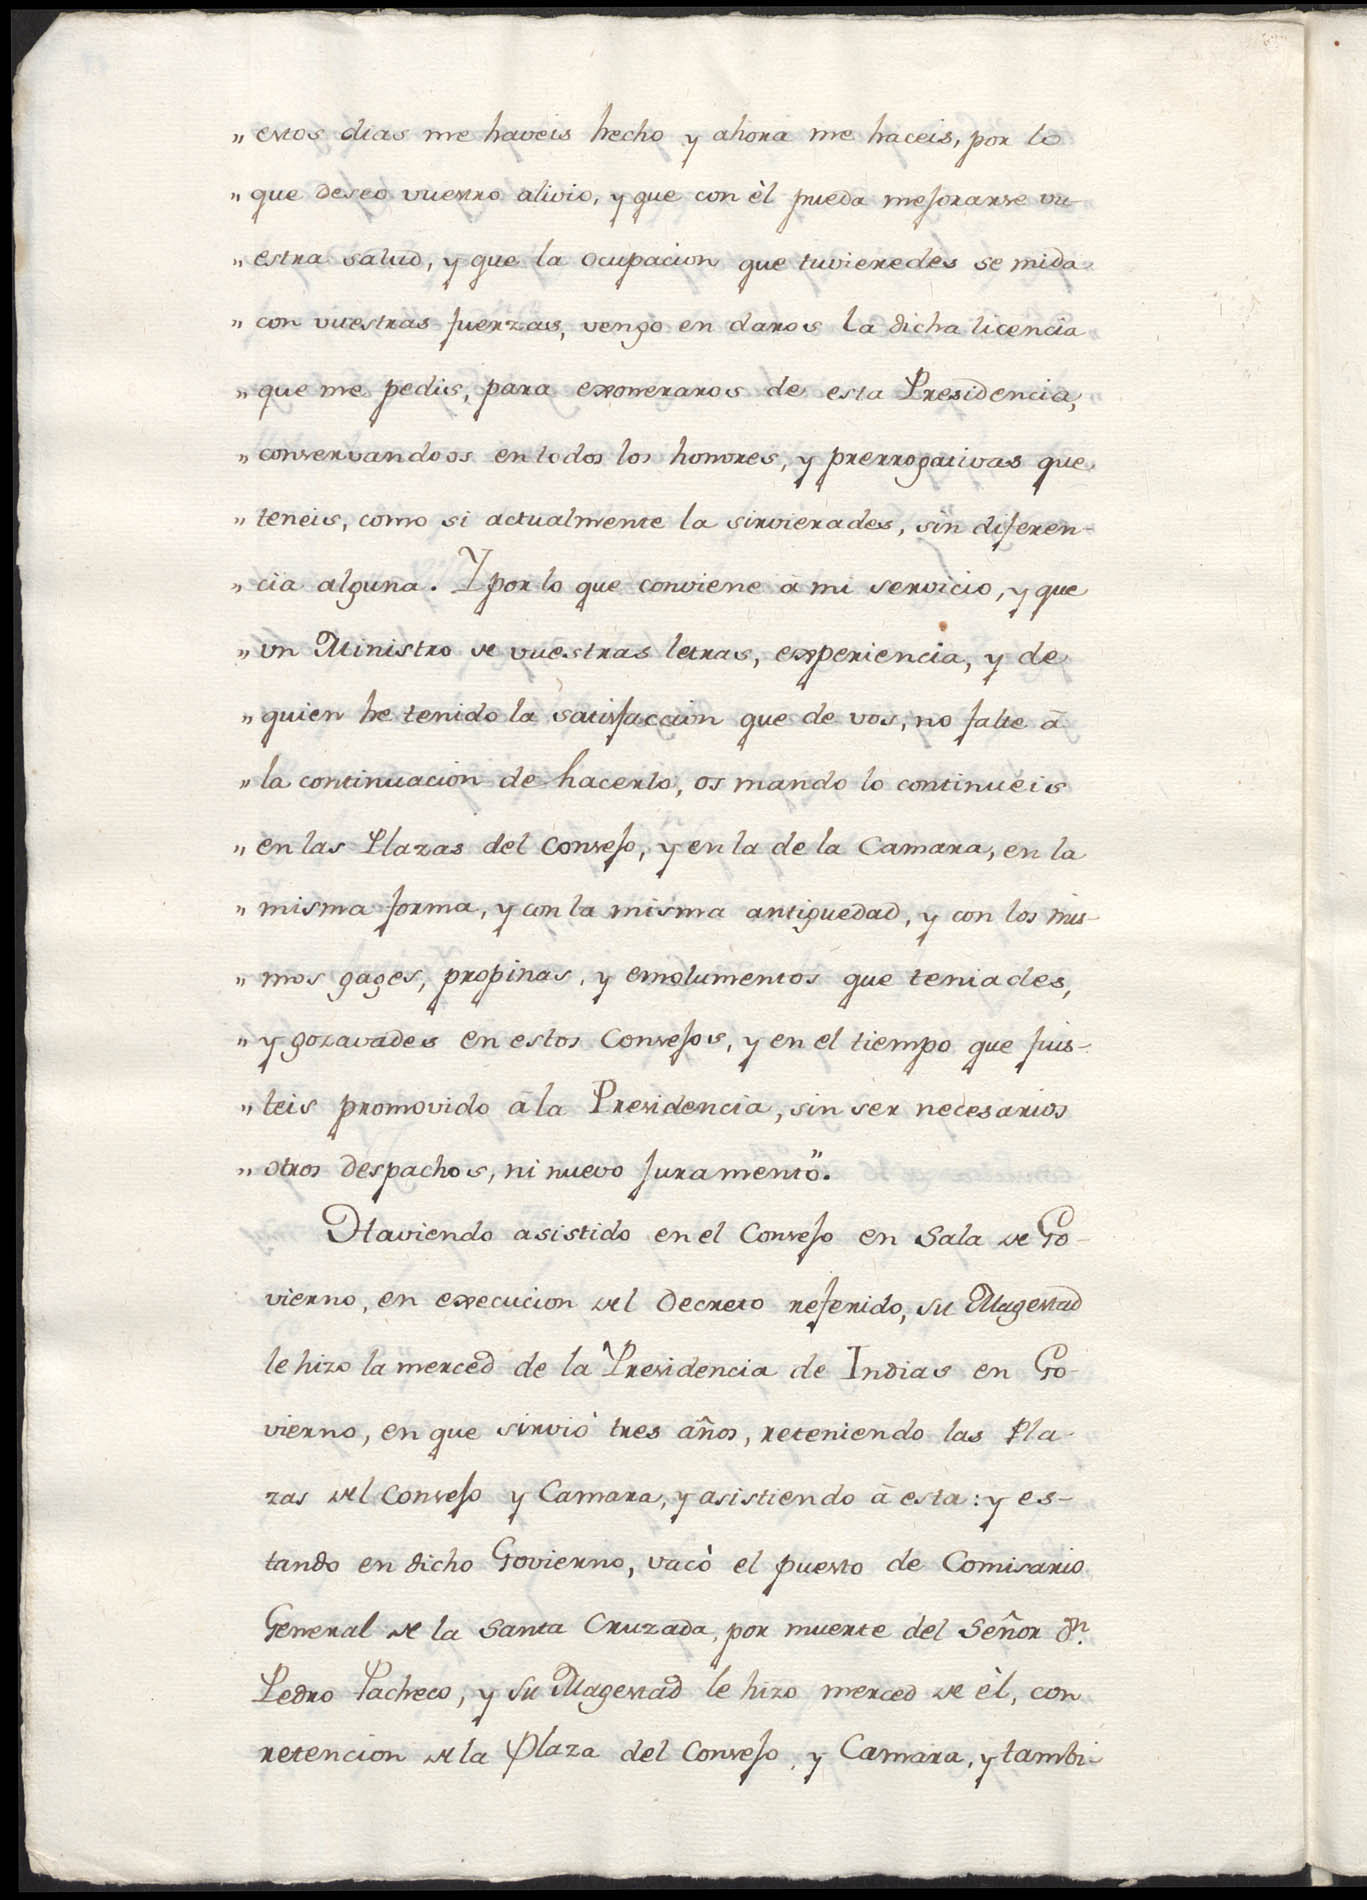 „ estos dias me haveis hecho y ahora me haceis, por lo
„ que deseo vuestro alivio, y que con èl pueda mejorarse vu-
„ estra salud, y que la ocupacion que tuvieredes se mida
„ con vuestras fuerzas, vengo en daros la dicha licencia
„ que me pedis, para exoneraros de esta Presidencia,
„ conservandoos en todos los honores, y prerrogativas que
„ teneis, como si actualmente la sirvierades, sin diferen-
„ cia alguna. Y por lo que conviene à mi servicio, y que
„ un Ministro de vuestras letras, experiencia, y de
„ quien he tenido la satisfaccion que de vos, no falte à
„ la continuacion de hacerlo, os mando lo continueis
„ en las Plazas del Consejo, y en la de la Camara, en la
„ misma forma, y con la misma antiguedad, y con los mis-
„ mos gages, propinas, y emolumentos que teniades,
„ y gozavades en estos Consejos, y en el tiempo que fuis-
„ teis promovido à la Presidencia, sin ser necesarios
„ otros despachos, ni nuevo juramento".
Haviendo asistido en el Consejo en Sala de Go-
vierno, en execucion del Decreto referido, su Magestad
le hizo la merced de la Presidencia de Indias en Go-
vierno, en que sirviò tres años, reteniendo las Pla-
zas del Consejo y Camara, y asistiendo à esta: y es-
tando en dicho Govierno, vacò el puesto de Comisario
General de la Santa Cruzada, por muerte del Señor Dn.
Pedro Pacheco, y su Magestad le hizo merced de èl, con
retencion de la Plaza del Consejo, y Camara, y tambi-